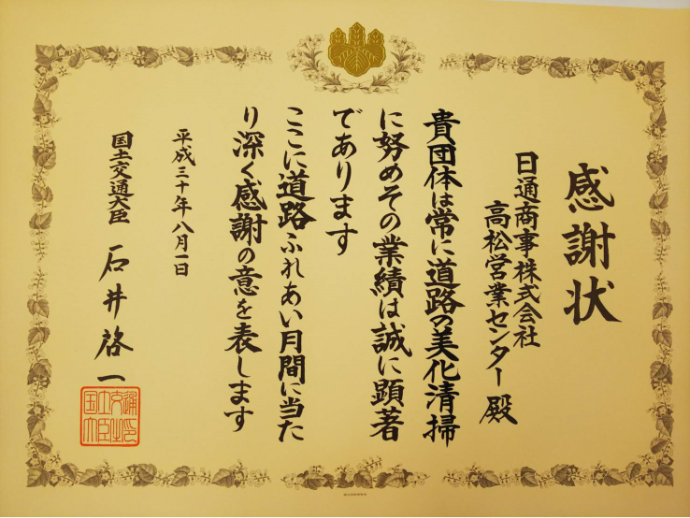 感謝状
日通商事株式会社
高松営業センター 殿
貴団体は常に道路の美化清掃
に努めその業績は誠に顕著
であります
ここに道路ふれあい月間に当た
り深く感謝の意を表します
平成三十年八月一日
国土交通大臣 石井啓一
国土交通大臣之印